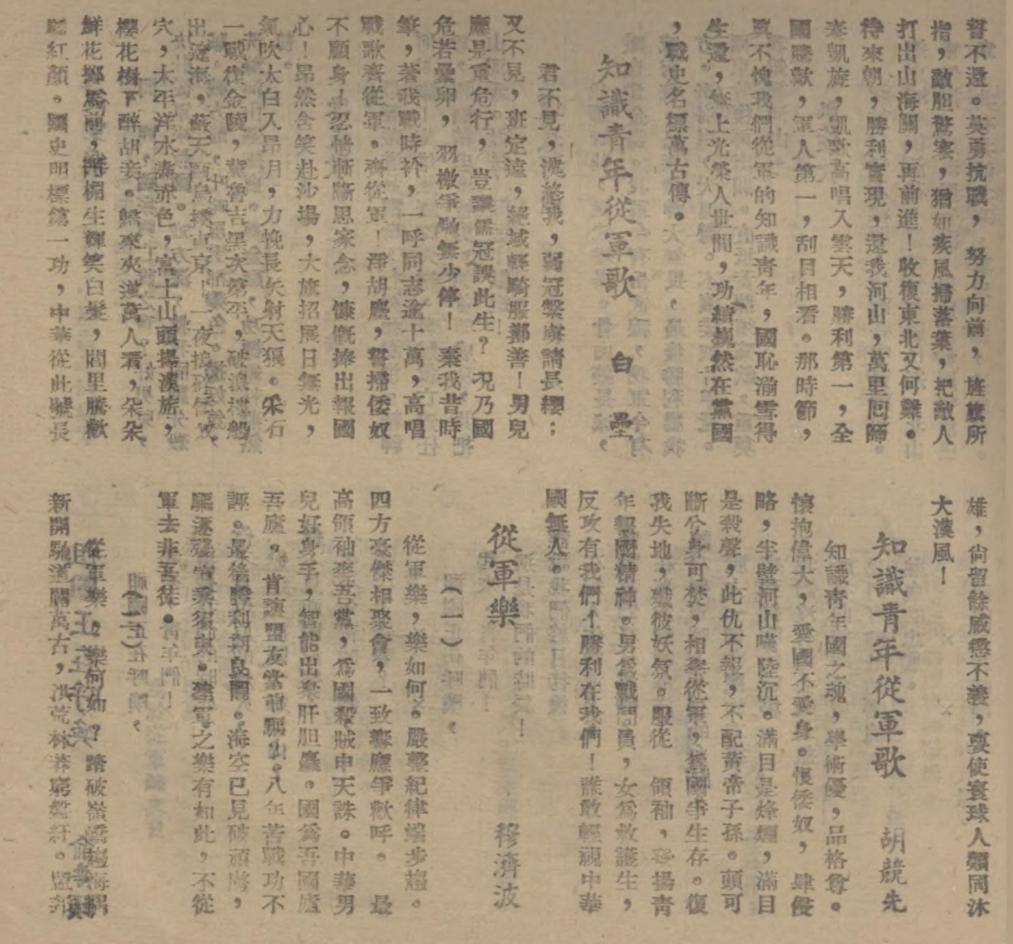 誓不還。英勇抗戰，努力向前，旌旗所
指，敵胆驚寒，猶如疾風掃落葉，把敵人
打出山海關，再前進！收復東北又何難。
待來朝，勝利實現，還我河山，萬里回師
奏凱旋，凱歌高唱入雲天，勝利第一，全
國騰歡，軍人第一，刮目相看。那時節，
眞不愧我們從軍的知識青年，國恥湔雪得
生還，無上光榮人世間，功績巍然在黨國
，戰史名標萬古傳。
知識青年從軍歌　白堊
君不見，漢終我，弱冠繫虜請長纓；
又不見，班定遠，絕域輕騎服鄯善！男兒
應是重危行，豈讓儒冠誤此生？況乃國
危若壘卵，羽檄爭馳無少停！棄我昔時
筆，著我戰時衿，一呼同志逾十萬，高唱
戰歌齊從軍。齊從軍！淨胡塵，誓掃倭奴
不顧身！忍情斬斷思家念，慷慨捧出報國
心！昂然含笑赴沙場，大旗招展日無光，
氣吹太白入昂月，力挽長矢射天狼。采石
一戰復金陵，冀魯吉黑次第平，破浪樓船
出遼海，蔽天鐵鳥撲東京！一夜搗碎倭奴
穴，太平洋水盡赤色，富士山頭揚漢旗，
櫻花樹下醉胡妾。歸來夾道萬人看，朵朵
鮮花擲馬前，門楣生輝笑白髮，閭里騰歡
紅顏。國史明標第一功，中華從此號長
雄，尙留餘威懲不義，要使寰球人類同沐
大漢風！
知識青年從軍歌　胡競先
知識青年國之魂，學術優，品格尊。
懷抱偉大，愛國不愛身。恨倭奴，肆侵
略，半壁河山嘆陸沉。滿目是烽烟，滿目
是殺聲，此仇不報，不配黃帝子孫。頭可
斷分身可焚，相率從軍，爲國爭生存。復
我失地，殲彼妖氛。服從　領袖，發揚靑
年報國精神。男爲戰鬥員，女爲救護生，
反攻有我們！勝利在我們！誰敢輕視中華
國無人。
從軍樂　穆濟波
（一）
從軍樂，樂如何。嚴聲紀律端步趨。
四方豪傑相聚會，一致響應爭歡呼。最
高領袖率吾黨，爲國殺賊申天誅。中華男
兒好身手，智能出衆肝胆麤。國爲吾國廬
吾廬，肯讓盟友當前驅。八年苦戰功不
誣。最後勝利到良圖。海空已見破頑虜，
驅逐殘寇乘須臾。從軍之樂有如此，不從
軍去非吾徒。
（二）
從軍樂，樂何如？踏破嶺嶠趨海隅
新開馳道關萬古，洪荒林莽窮縈紆。盟